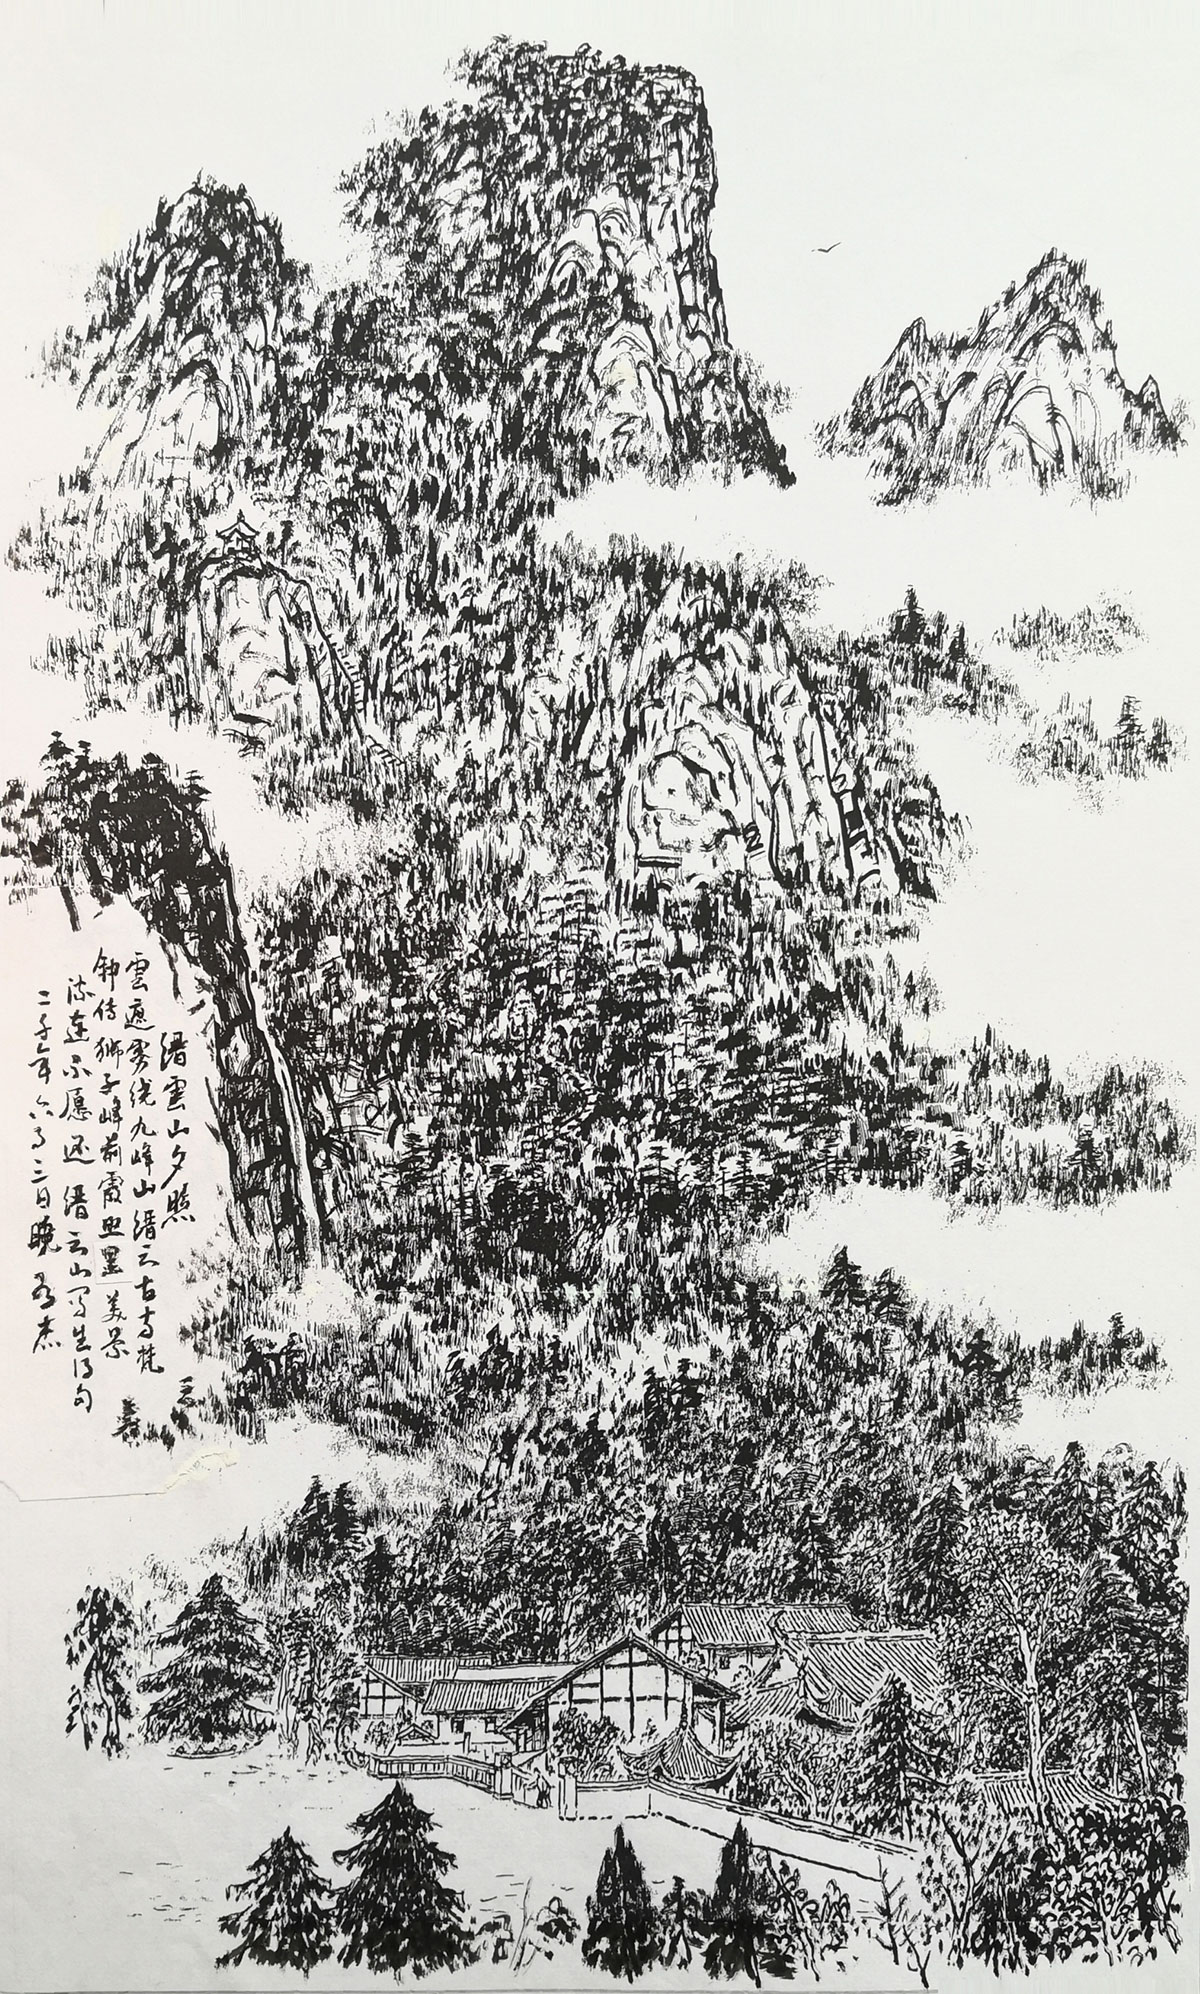 缙雲山夕照
雲遮雾绕九峰山缙云古寺梵
钟传狮子峰前霞照里美景
流连不愿还缙云山写生得句
二〇〇年六月三日晚